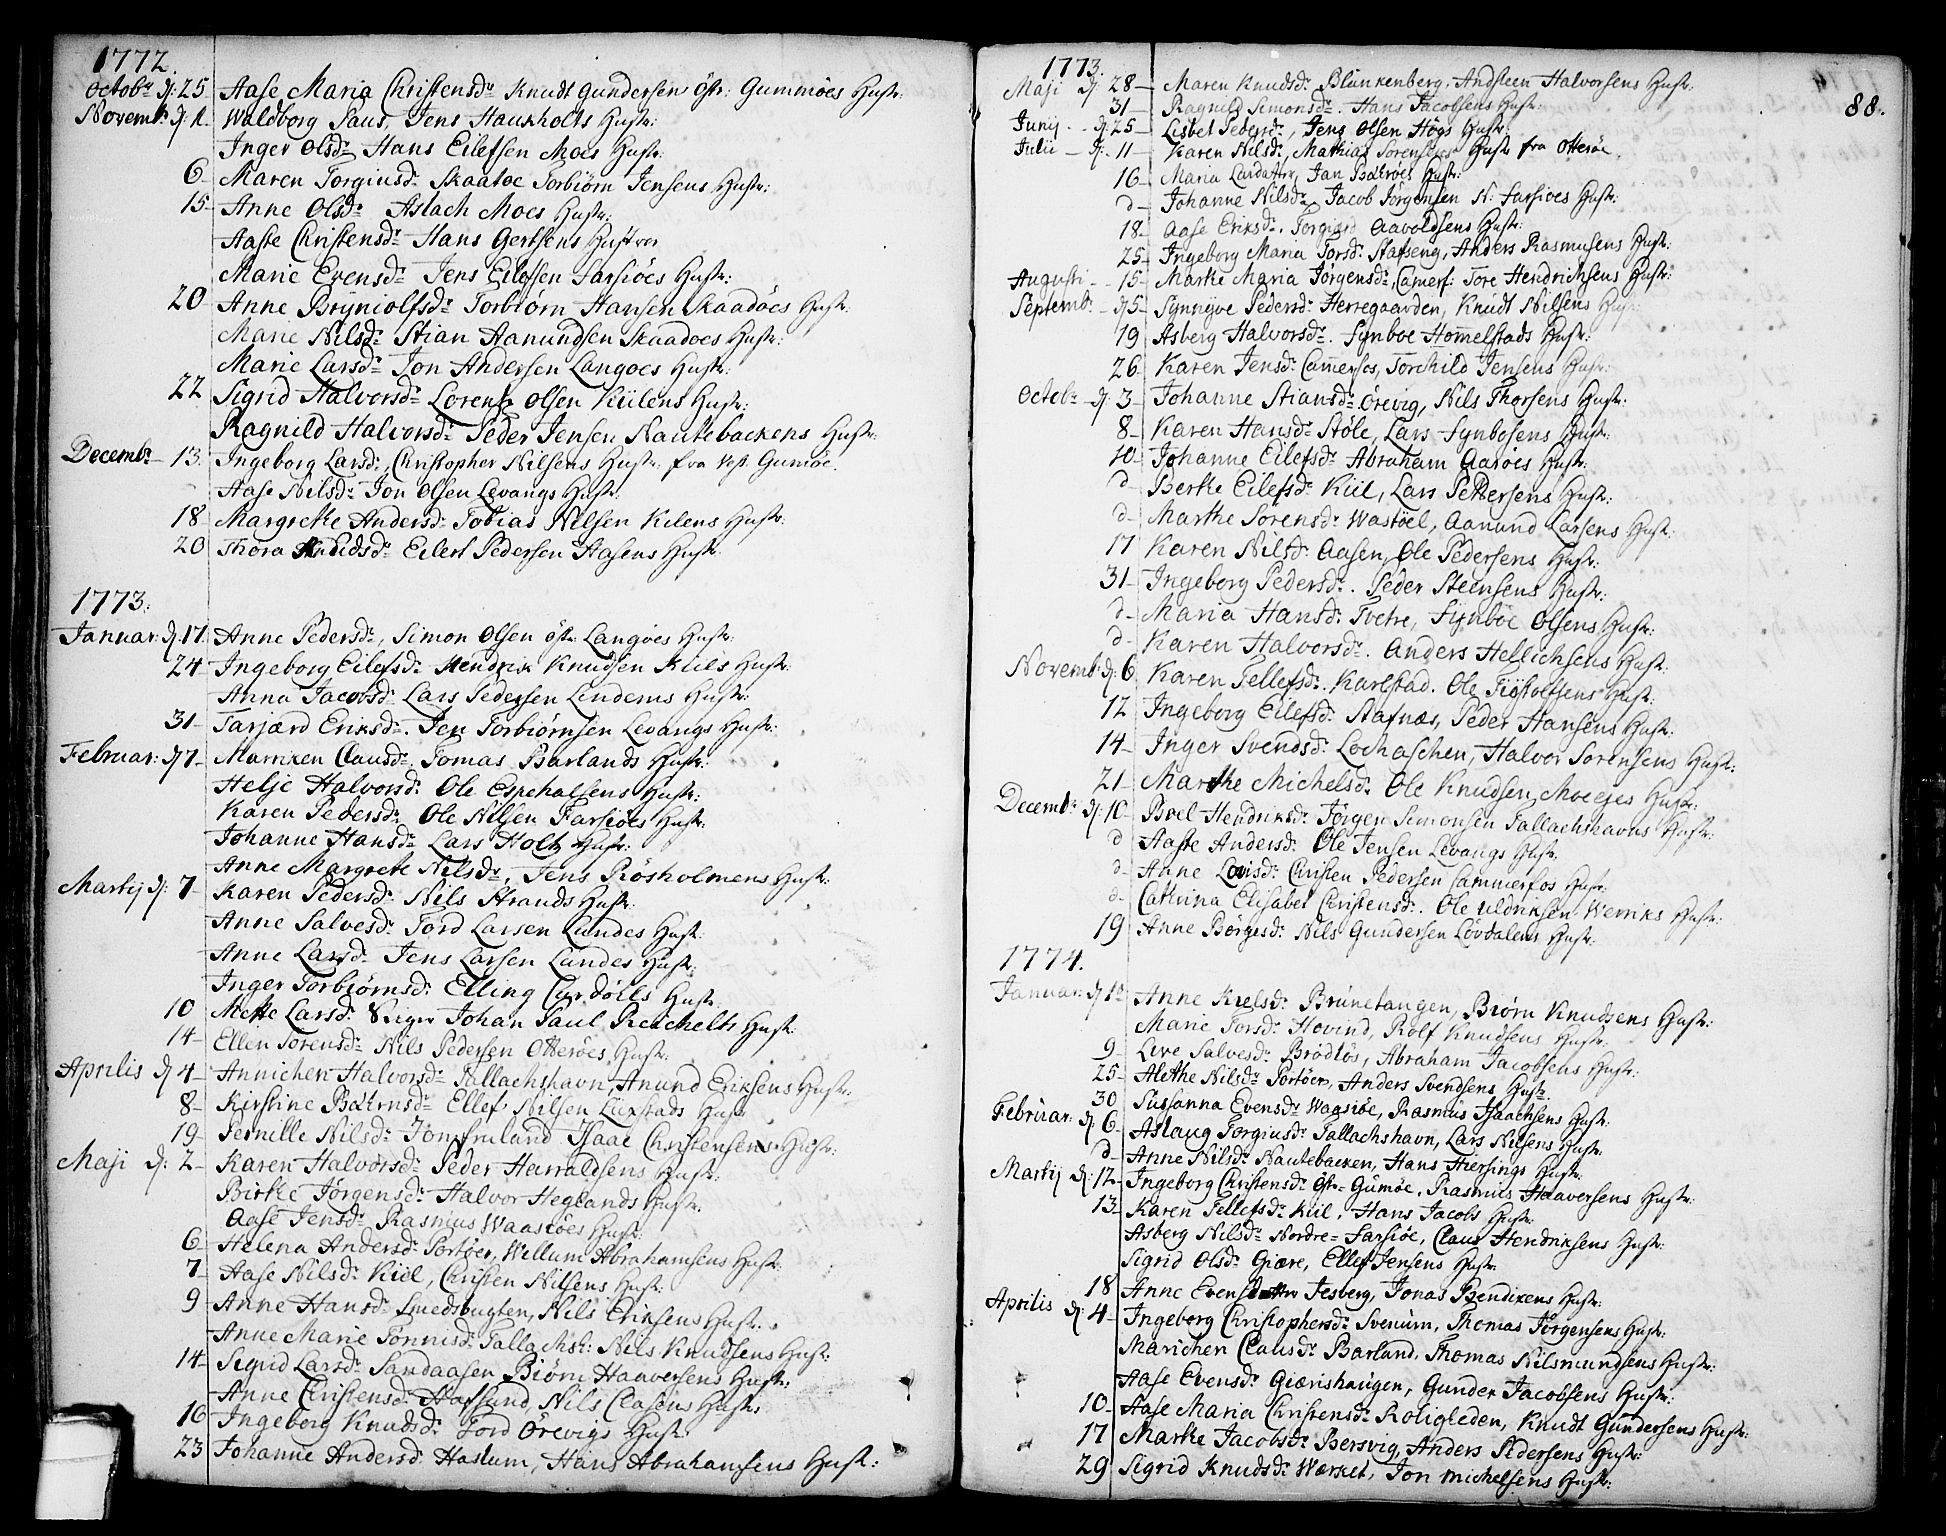 1772.
Octobr d: 25 Aase Maria Christensdr Knudt Gundersens östr: Gummöes Hustr:
Novembr d: 1. Waldborg Saus, Jens Haukholts Hustr:
Inger Olsdr Hans Eilefsen Moes Hustr:
6 Maren Torgiusdr Skaatøe Torbiörn Jensens Hustr:
15 Anne Olsdr Aslach Moes Hustr:
Aaste Christensdr Hans Gertsens Hustroe
Marie Evensdr Jens Eilefsen Farsiöes Hustr:
20 Anne Bryniolfsdr Torbiörn Hansen Skaadöes Hustr:
Marie Nilsdr Stian Aanundsen Skaadoes Hustr:
Marie Larsdr Jon Andersen Langoes Hustr:
22 Sigrid Halvorsdr Lorentz Olsen Kiilens Hustr:
Ragnild Halvorsdr Peder Jensen Nautebackens Hustr:
Decembr 13. Ingeborg Larsdr, Christopher Nilsens Hustr: fra vest. Gumöe.
Aase Nilsdr Jon Olsen Levangs Hustr:
18 Margrethe Andersdr Tobias Nilsen Kilens Hustr:
20 Thora Knudsdr Eilert Pedersen Aasens Hustr:
1773:
Januar: d: 17. Anne Pedersdr, Simon Olsen östr Langöes Hustr:
24 Ingeborg Eilefsdr Hendrik Knudsen Kiils Hustr:
Anna Jacobsdr Lars Pedersen Lindems Hustr:
31 Tarjærd Eriksdr. Jen Torbiörnsen Levangs Hustr:
Februar: d 7 Marriken Clausdr. Tomas Barlands Hustr:
Helje Halvorsdr Ole Espehalsens Hustr:
Karen Pedersdr Ole Nilsen Farsiöes Hustr:
Johanne Hansdr Lars Holtz Hustr:
Anne Margrete Nilsdr, Jens Rösholmens Hustr:
Martij d: 7 Karen Pedersdr Nils Strands Hustr:
Anne Salvesdr Tord Larsen Lundes Hustr:
Anne Larsdr Jens Larsen Landes Hustr:
Inger Torbiörnsdr Elling Hustr:
10 Mette Larsdr Johan Paul Reichelts Hustr:
14 Ellen Sorensdr Nils Pedersen Otteröes Hustr:
Aprilis d 4 Annichen Halvorsdr Tallachshavn Anund Eriksens Hustr:
8 Kirstine Ellef Nilsen Lixstads Hustr
19 Pernille Nilsdr Jomfruland Isaac Christensens Hustr:
Maji d: 2 Karen Halvorsdr Peder Harraldsens Hustr:
Birthe Jörgensdr Halvor Heglands Hustr.
Aase Jensdr Rasmus Waasiöes Hustr:
6 Helena Andersdr Portöer, Willum Abrahamsens Hustr:
7 Aase Nilsdr Kiil, Christen Nilsens Hustr:
9 Anne Hansdr Smedsbugten, Nils Eriksens Hustr:
Anne Marie Tönnisdr Tallachsh: Nils Knudsens Hustr:
14 Sigrid Larsdr Sandaasen Biörn Haaversens Hustr:
Anne Christensdr Hafsund, Nils Clasens Hustr:
16 Ingeborg Knudsdr Tord Örevigs Hustr:
23 Johanne Andersdr Haslum, Hans Abrahamsens Hustr:
88.
1773.
Maji d: 28 Maren Knudsdr Blankenberg, Andsteen Halvorsens Hustr:
31 Ragnild Simonsdr. Hans Jacobsens Hustr:
Junij d: 25 Lisbet Pedersdr, Jens Olsen Högs Hustr:
Julii d: 11 Karen Nilsdr, Mathias Sorensens Hustr fra Otteröe.
16 Maria Jan Hustr:
d Johanne Nilsdr Jacob Jörgensen N: Farsioes Hustr:
18 Aase Eriksdr. Torgierd Aavoldsens Hustr:
25 Ingeborg Maria Torsdr Stafseng, Anders Rasmusens Hustr:
Augusti 15 Marthe Maria Jörgensdr, Camerf: Tore Hendrichsens Hustr:
Septemb: d 5 Synnyve Pedersdr Herregaarden, Knudt Nilsens Hustr:
19 Asberg Halvorsdr. Synboe Hommelstads Hustr:
26 Karen Jensdr Camerfos, Torchild Jensens Hustr:
Octobr d: 3 Johanne Stiansdr Örevig, Nils Thorsens Hustr:
8 Karen Hansdr Stöle, Lars Synbosens Hustr:
10 Johanne Eilefsdr Abraham Aaröes Hustr:
d Berthe Eilefsdr Kiil, Lars Pettersens Hustr:
d Marthe Sörensdr Wastöel, Aanund Larsens Hustr:
17 Karen Nilsdr Aasen, Ole Pedersens Hustr:
31 Ingeborg Pedersdr. Peder Steensens Hustr:
d Maria Hansdr Tvetre, Synböe Olsens Hustr:
d Karen Halvorsdr. Anders Hellichsens Hustr:
Novemb d: 6. Karen Tellefsdr. Karlstad. Ole Tiöstolfsens Hustr:
12 Ingeborg Eilefsdr. Stafnæs, Peder Hansens Hustr:
14 Inger Svendsdr Lochaschen, Halvor Sorensens Hustr:
21 Marthe Michelsdr Ole Knudsen Moeejes Hustr:
Decembr d: 10 Boel Hendriksdr Jörgen Simonsen Tallachshavns Hustr:
d Aaste Andersdr Ole Jensen Levangs Hustr.
d Anne Lovisdr Christen Pedersen Cammerfos Hustr:
d Cathrina Elisabet Christensdr. Ole Uldriksen Werriks Hustr:
19 Anne Börgesdr Nils Gundersen Lövdalens Hustr:
1774.
Januar: d 1 Anne Kielsdr Brunetangen, Biørn Knudsens Hustr:
Marie Torsdr Hovind, Rolf Knudsens Hustr:
9 Live Salvesdr Brödlös, Abraham Jacobsens Hustr:
25 Alethe Nilsdr Portöer, Anders Svendsens Hustr
30 Susanna Evensdr Waasiöe, Rasmus Isaachsens Hustr:
Februar: d: 6 Aslaug Torgiusdr Tallachshavn, Lars Nilsens Hustr:
d Anne Nilsdr Nautebacken, Hans Hiersings Hustr:
Martij d: 12 Ingeborg Christensdr östr Gumöe, Rasmus Haaversens Hustr:
13 Karen Tellefsdr Kiil, Hans Jacobs Hustr:
Asberg Nilsdr Nordre Farsiöe, Claus Hendriksens Hustr:
Sigrid Olsdr Giære, Ellef Jensens Hustr:
18 Anne Evensd Jesberg, Jonas Bendixens Hustr:
Aprilis d: 4 Ingeborg Christophersdr Svenum, Thomas Jörgensens Hustr:
Marichen Clausdr Barland, Thomas Nilsmundsens Hustr:
Aase Evensdr Giærishaugen, Gunder Jacobsens Hustr:
10 Aase Maria Christensdr Roligleden, Knudt Gundersens Hustr:
17 Marthe Jacobsdr Bersvig, Anders Pedersens Hustr:
29 Sigrid Knudsdr Wærslet, Jon Michelsens Hustr: